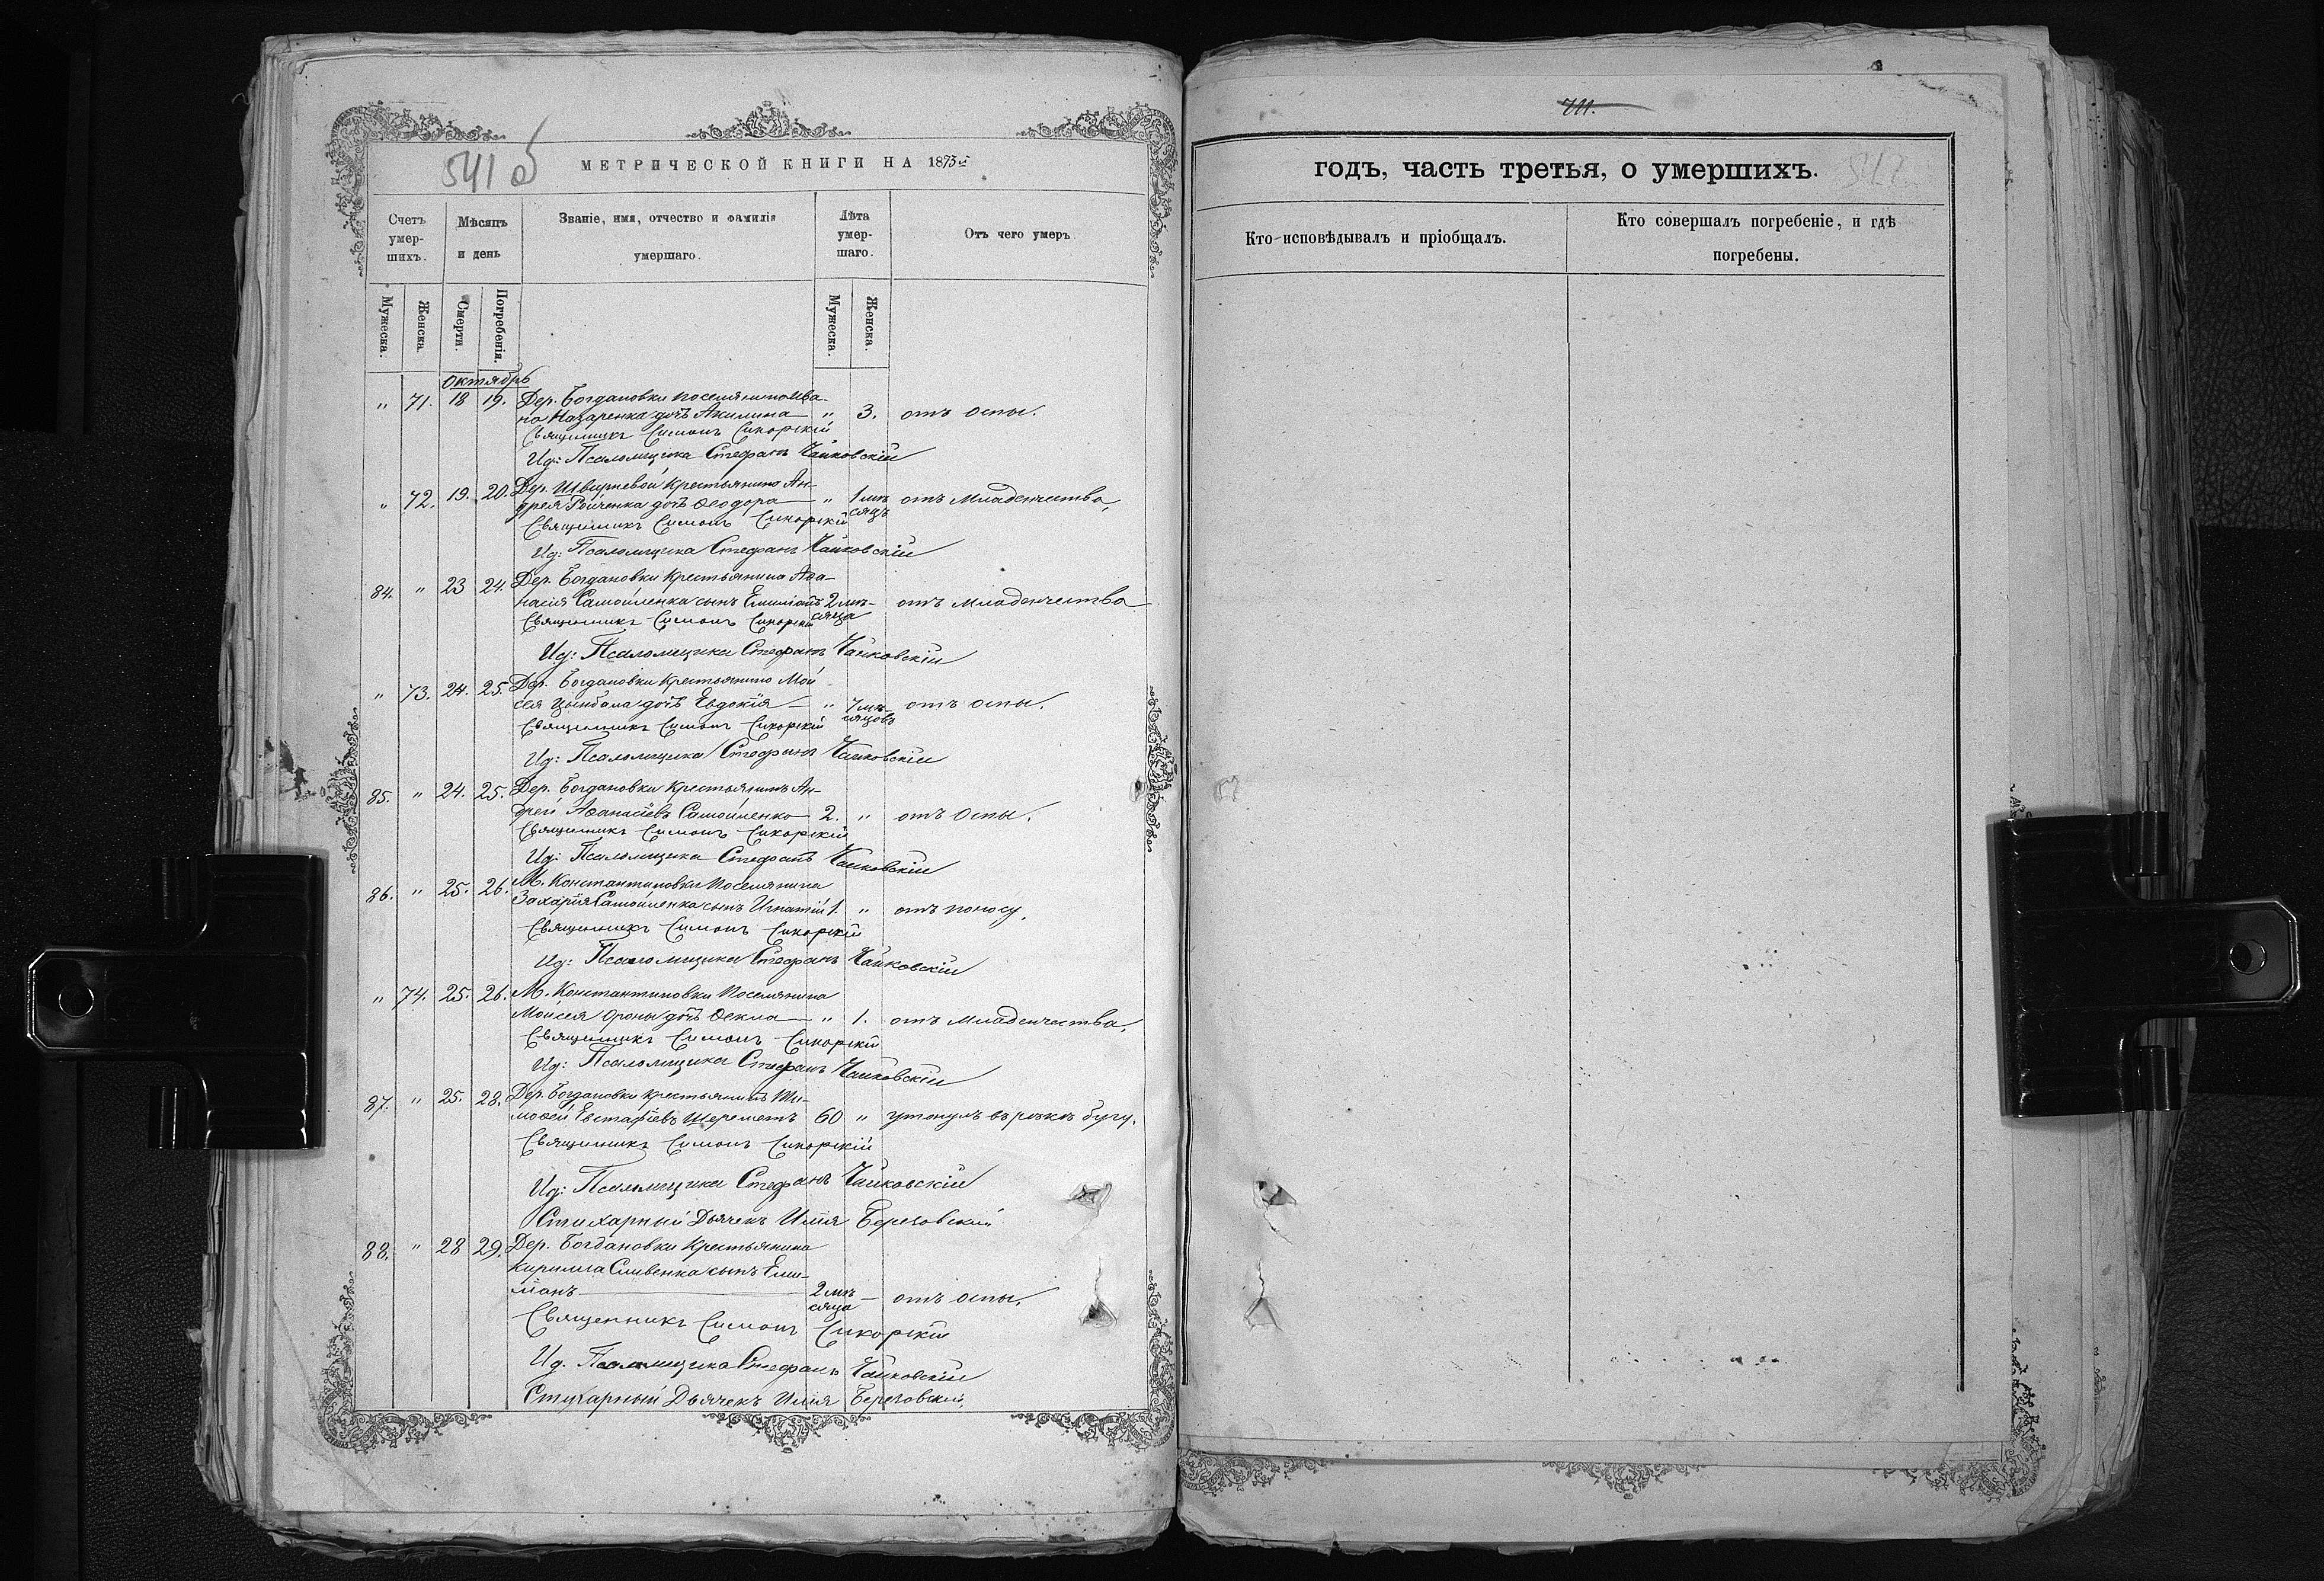 541 об
МЕТРИЧЕСКОЙ КНИГИ НА 1875
Счетъ умер-шихъ.
Мѣсяцъ и день
Званіе, имя, отчество и фамилія умершаго.
Лѣта умер-шаго.
Отъ чего умеръ
Мужеска.
Женска.
Смерти.
Погребенія.
Мужеска.
Женска.
Октябрь
" 71. 18 19. Дер. Богдановки поселянина Ива-
на Назаренка дочь Акилина " 3. отъ оспы.
Священникъ Симонъ Сикорскій
Ид: Псаломщика Стефанъ Чайковскій
" 72. 19. 20. Дер. Крестьянина Ан-
дрея дочь Ѳеодора " 1 мѣ-сяцъ отъ младенчества,
Священникъ Симонъ Сикорскій
Ид: Псаломщика Стефанъ Чайковскій
84. " 23 24. Дер. Богдановки Крестьянина Аѳа-
насія Самойленка сынъ Емиліанъ 2 мѣ-сяца отъ младенчества
Священникъ Симонъ Сикорскій
Ид: Псаломщика Стефанъ Чайковскій
" 73. 24. 25. Дер. Богдановки Крестьянина Мои
сея Цымбала дочь Евдокія " 7 мѣ-сяцовъ отъ оспы.
Священникъ Симонъ Сикорскій
Ид: Псаломщика Стефанъ Чайковскій
85. " 24. 25. Дер. Богдановки Крестьянинъ Ан-
дрей Аѳанасіевъ Самойленко 2. " отъ оспы.
Священникъ Симонъ Сикорскій
Ид: Псаломщика Стефанъ Чайковскій
86. " 25. 26. М. Константиновки поселянина
Захарія Самойленка сынъ Игнатій 1. " отъ поносу.
Священникъ Симонъ Сикорскій
Ид: Псаломщика Стефанъ Чайковскій
" 74. 25. 26. М. Константиновки Поселянина
Моисея дочь Ѳекла " 1. отъ младенчества.
Священникъ Симонъ Сикорскій
Ид: Псаломщика Стефанъ Чайковскій
87. " 25. 28. Дер. Богдановки крестьянинъ Ти-
моѳей Евстафіевъ Шереметъ 60 " утонулъ въ рѣкѣ бугу.
Священникъ Симонъ Сикорскій
Ид: Псаломщика Стефанъ Чайковскій
Стихарный Дьячекъ Илія Березовскій
88. " 28 29. Дер. Богдановки Крестьянина
Кирилла Сливенка сынъ Еми-
ліанъ 2 мѣ-сяца — отъ оспы.
Священникъ Симонъ Сикорскій
Ид. Псаломщика Стефанъ Чайковскій
Стихарный Дьячекъ Илія Березовскій.
711.
годъ, часть третья, о умершихъ.
542
Кто исповѣдывалъ и пріобщалъ.
Кто совершалъ погребеніе, и гдѣ
погребены.